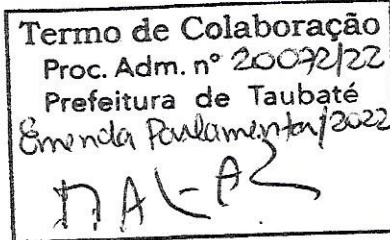 Termo de Colaboração
Proc. Adm. n° 20072/22
Prefeitura de Taubaté
Emenda Parlamentar/2022